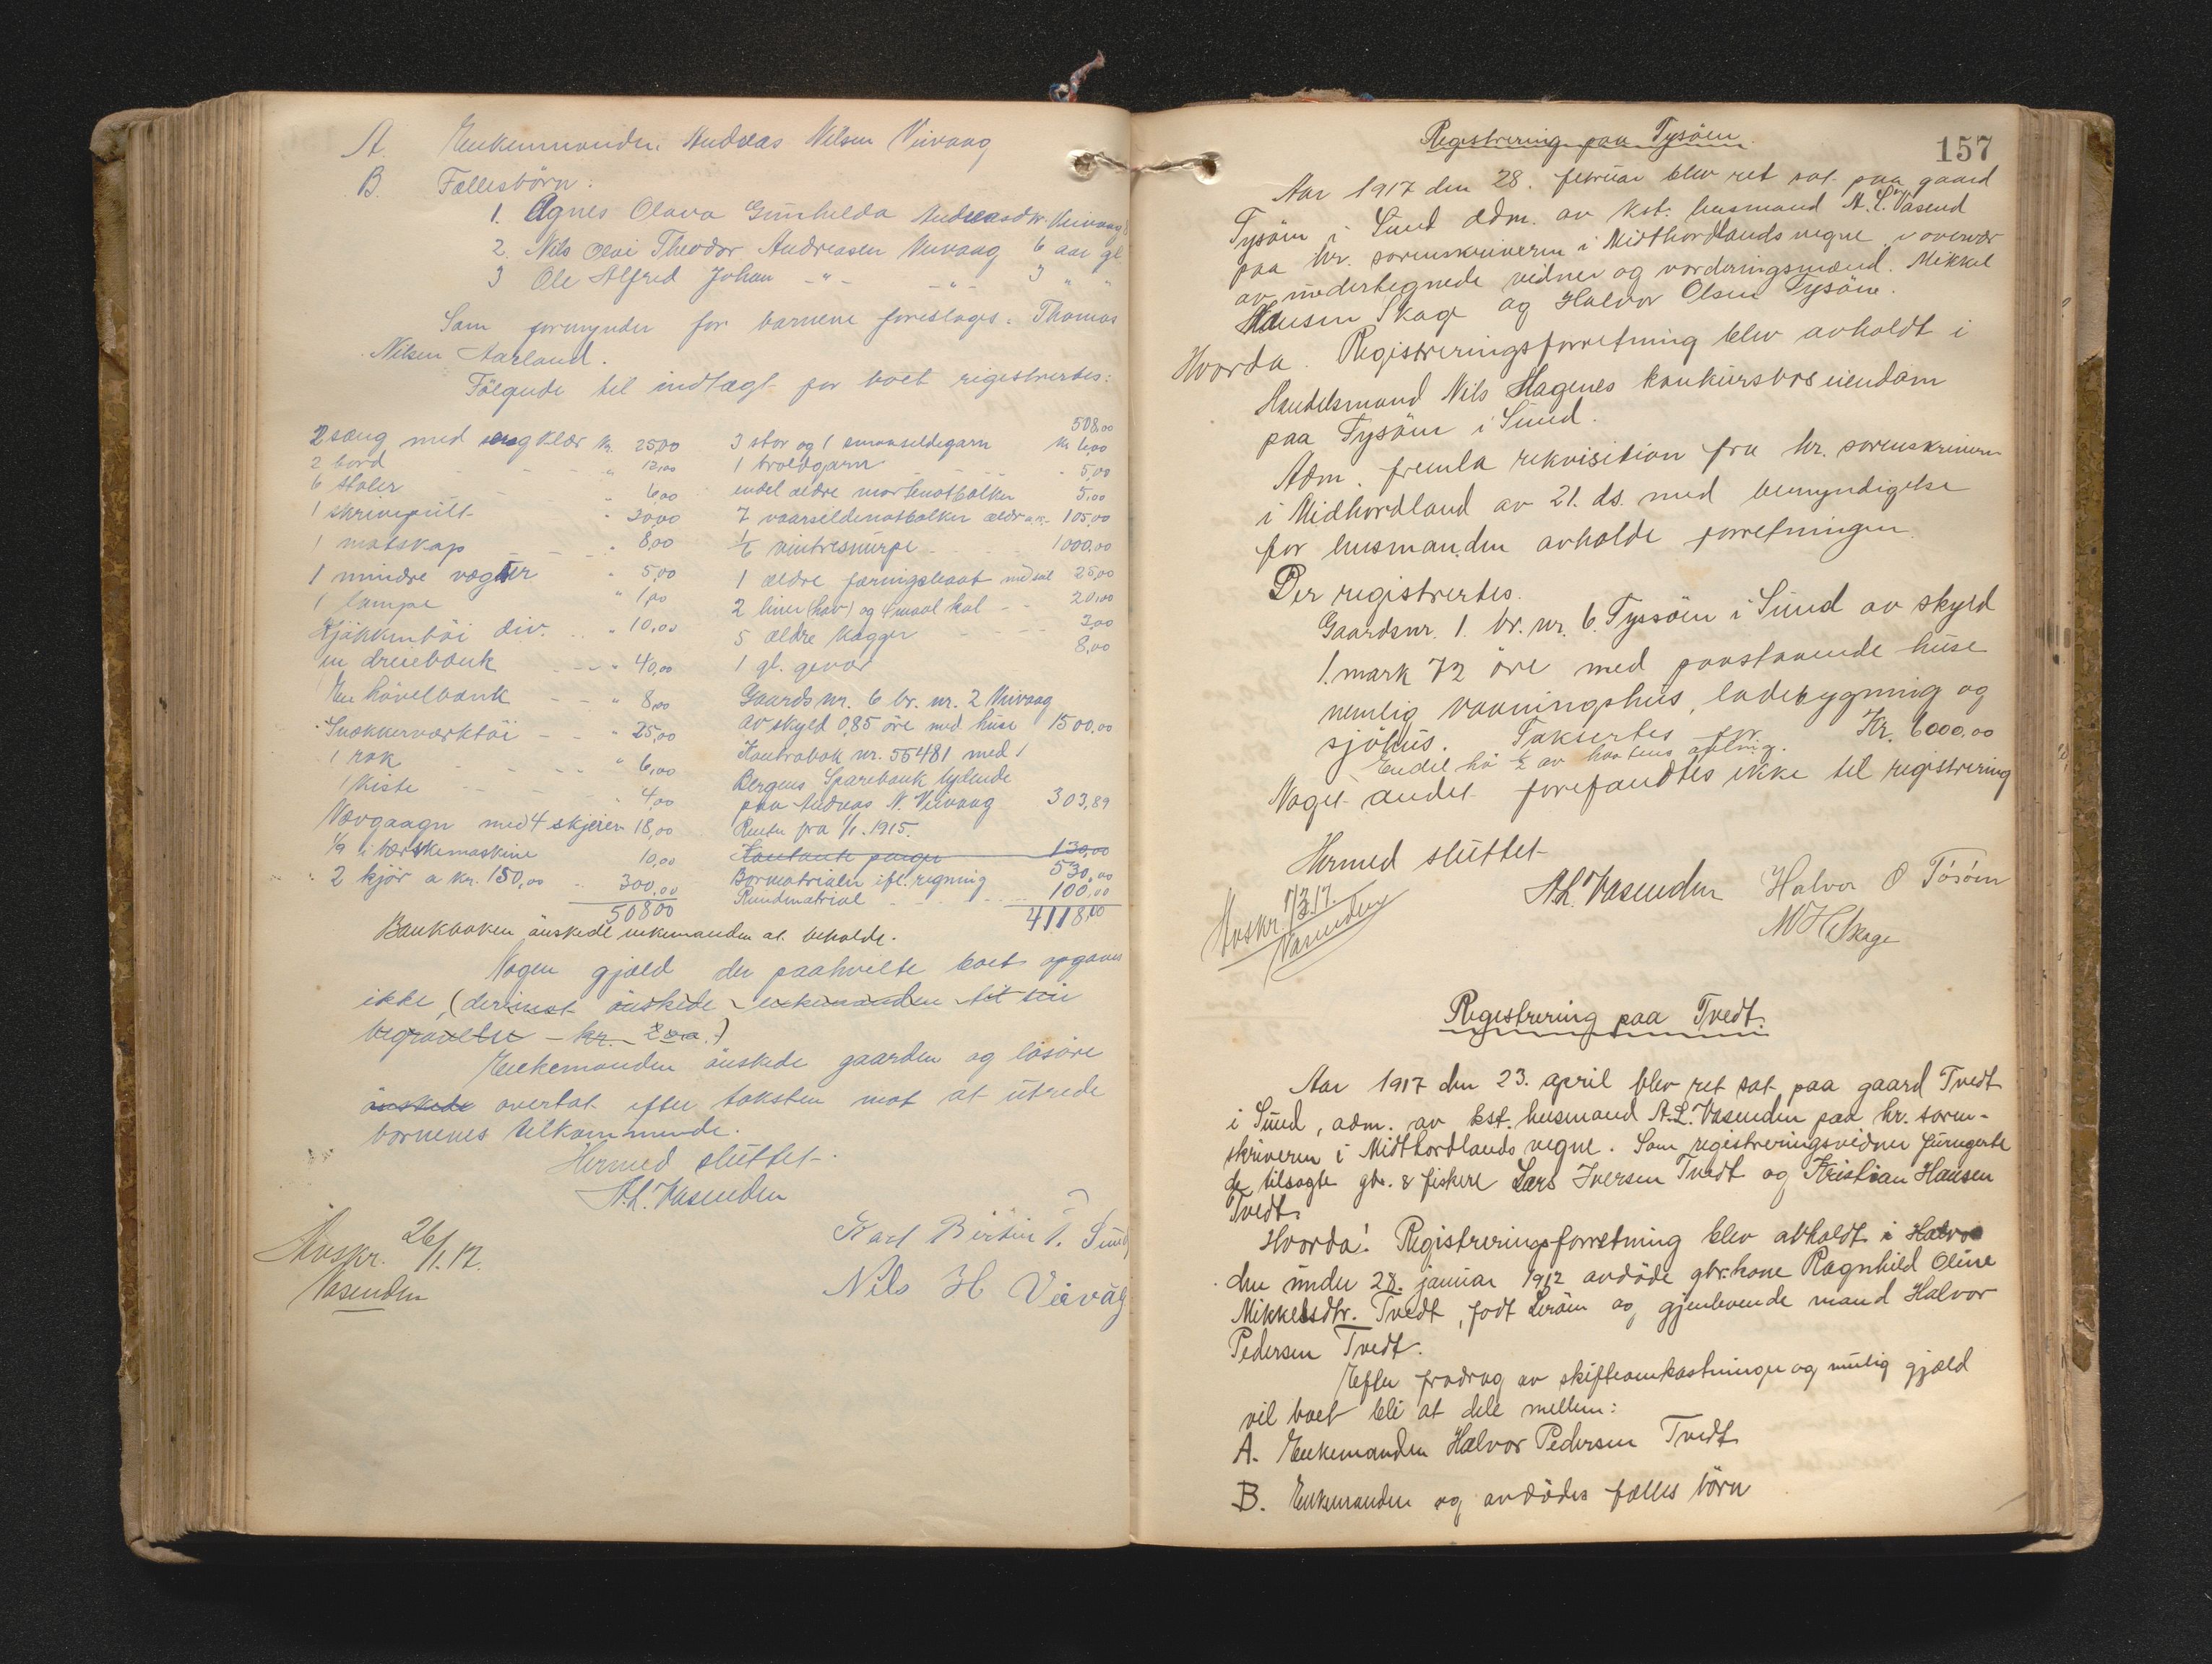 A. Enkemanden Andreas Nilsen Viivaag
B. Fællesbörn:
1. Agnes Olava Gunhilda Andreasdtr. Viivaag
2. Nils Olai Theodor Andreasen Viivaag 6 aar gl
3 Ole Alfred Johan -"- -"- 3 " "
Som formynder for barnene foreslages: Thomas
Nilsen Aarland.
Fölgende til indtægt for boet registrertes:
2 sæng med sengklær kr. 25,00
2 bord - - - " 12,00
6 stoler - - " 6,00
1 skrivepult - " 20,00
1 matskap - - - " 8,00
1 mindre vægur " 5,00
1 lampe " 1,00
Kjökkentöi div. - - " 10,00
en dreiebænk - - - " 40,00
En hövelbænk - - " 8,00
Snekkerværktöi - - " 25,00
1 rok - - - - " 6,00
1 kiste - - - - " 4,00
Vævgaagn med 4 skjeier 18,00
1/9 i tærskemaskine 10,00
2 kjör a kr. 150,00 - - 300,00
508,00
508,00
3 stor og 1 smaasildegarn kr 6,00
1 troldgarn - - - - - " 5,00
endel ældre mortenotbolker 5,00
7 vaarsildenotbolker ældre - 105,00
1/6 vintresnurpe - - - - 1000,00
1 ældre færingsbaat med seil 25,00
2 liner (hav) og 4 maal kol - - 20,00
5 ældre kagger - - - - 2,00
1 gl. gevær 8,00
Gaards nr. 6 br. nr. 2 Viivaag
av skyld 0,85 öre med huse 1500,00
Kontrabok nr. 55481 med 1
Bergens Sparebank lydende
paa Andreas N. Viivaag 303,89
Renter fra 1/1. 1915.
Kontante penger 130,00
Bormatrialer ifl. regning 530,00
Rundmatrial - - - - 100,00
4118,00
Bankboken önskede enkemanden at beholde.
Nogen gjæld der paahvilte boet opgaves
ikke, (derimot önskede enkemanden til sin
begravelse - kr. 200.)
Enkemanden önskede gaarden og lösöre
önskede overtat efter taksten mot at utrede
bornenes tilkommende.
Hermed sluttet.
A.L. Vasenden
Karl Bertin T. Sund
Nils H Viivåg
Avskr. 26/1. 17.
Vasenden
157
Registrering paa Tysöen.
Aar 1917 den 28. februar blev ret sat paa gaard
Tysöen i Sund adm. av kst. lensmand A. L. Vasend
paa hr. sorenskriveren i Midthordlands vegne i overvær
av undertegnede vidner og vorderingsmænd. Mikkel
Hansen Skage og Halvor Olsen Tysöen.
Hvorda. Registreringsforretning blev avholdt i
Handelsmand Nils Hagenes konkursbos eiendom
paa Tysöen i Sund.
Adm. fremla rekvisition fra hr. sorenskriveren
i Midhordland av 21. ds. med bemyndigelse
for lensmanden avholde forretningen.
Der registrertes.
Gaardsnr. 1. br. nr. 6. Tysöen i Sund av skyld
1. mark 72 öre med paastaaende huse
nemlig vaaningshus, ladebygning og
sjöhus. Taksertes for Kr. 6000,00
Endel hö 1/2 av höstens avling.
Noget andet forefandtes ikke til registrering
Hermed sluttet
A.L. Vasenden Halvor O Tösöen
M H Skage
Avskr. 1/3. 17.
Vasenden
Registrering paa Tvedt.
Aar 1917 den 23. april blev ret sat paa gaard Tvedt
i Sund, adm. av kst. lensmand A.L. Vasenden paa hr. soren-
skriveren i Midthordlands vegne. Som registreringsvidner fungerte
de tilsagte gbr. & fiskere Lars Iversen Tvedt og Kristian Hansen
Tvedt.
Hvorda! Registreringsforretning blev avholdt i Halvor
den under 28. januar 1912 avdöde gbr.kone Ragnhild Oline
Mikkelsdtr. Tvedt, födt Leröen og gjenlevende mand Halvor
Pedersen Tvedt.
Efter fradrag av skifteomkostninger og mulig gjæld
vil boet bli at dele mellem:
A. Enkemanden Halvor Pedersen Tvedt
B. Enkemanden og avdödes fælles börn